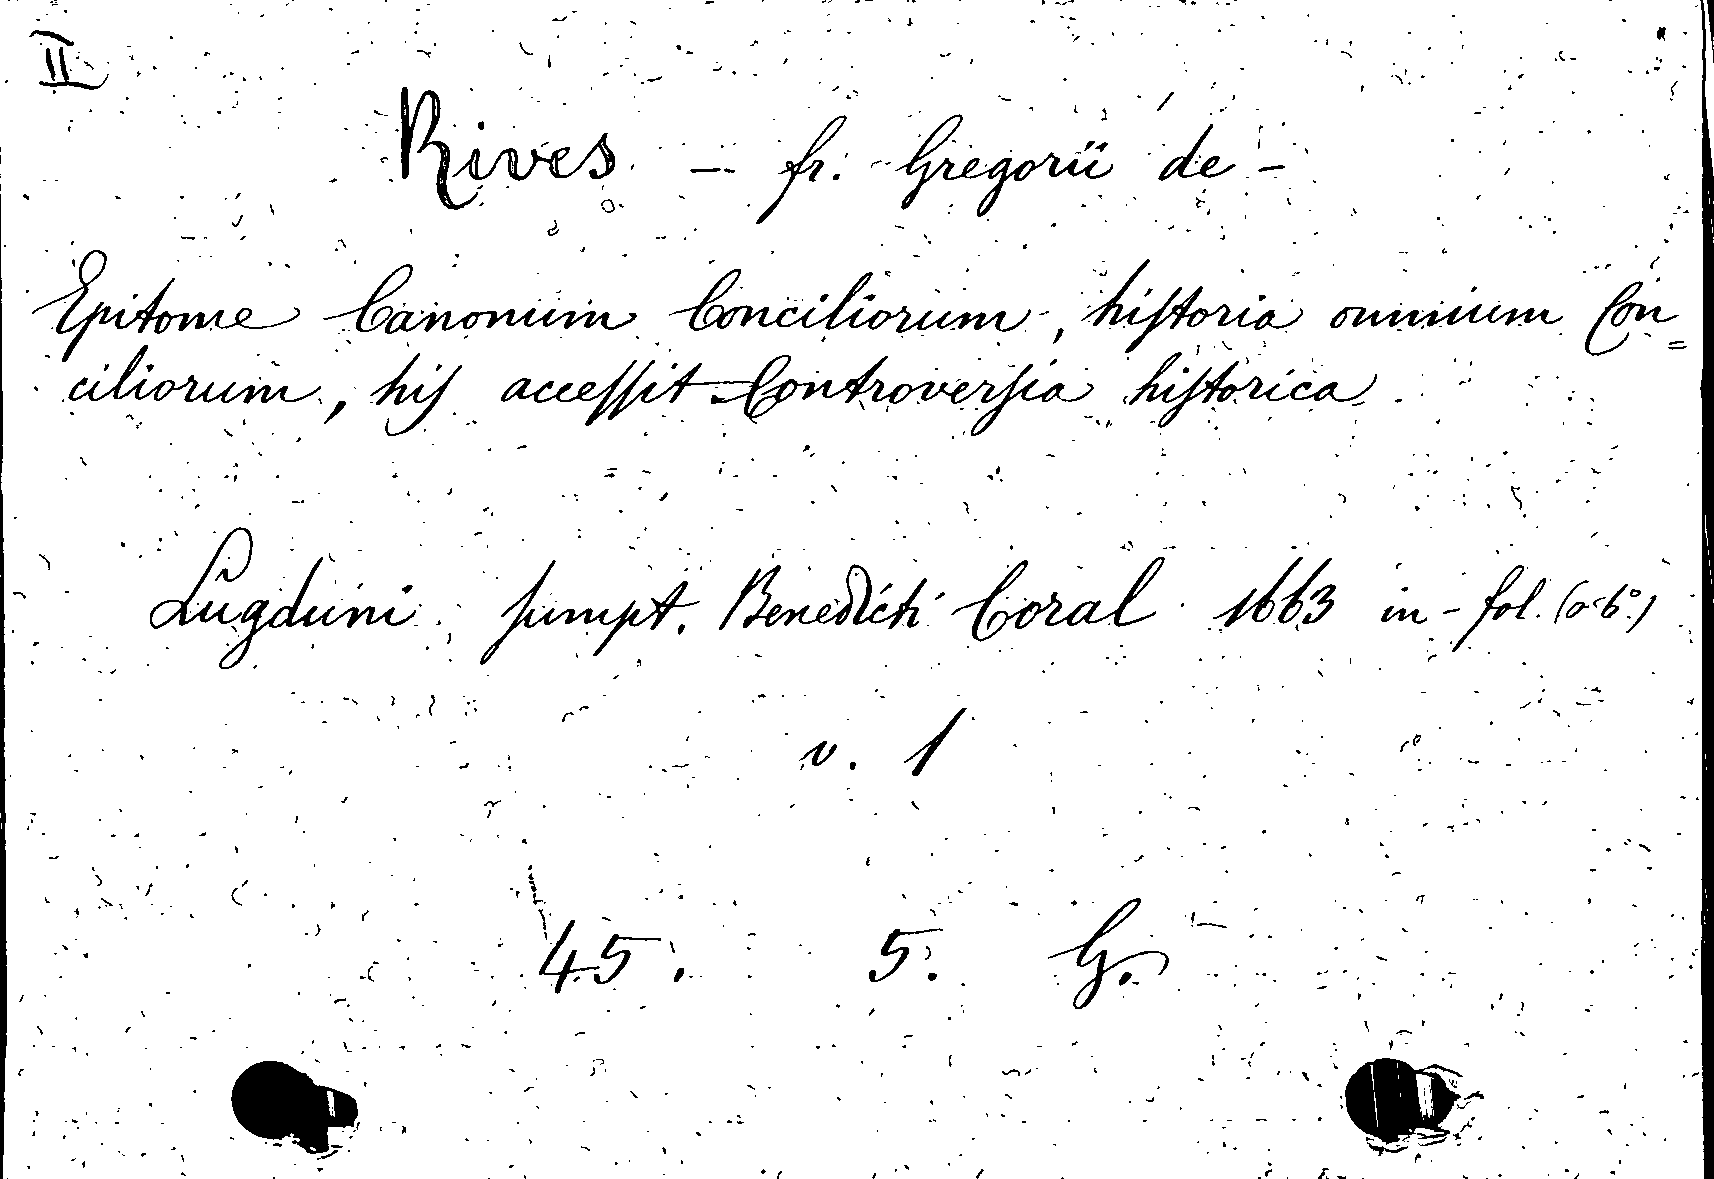 II
Rives — fr. Gregorii de -
Epitome Canonum Conciliorum, hiſtoria omnium Con=
ciliorum, hiſ acceſſit Controverſia hiſtorica
Lugduni ſumpt. Benedicti Coral 1663 in-fol.
v. 1
45. 5. G.